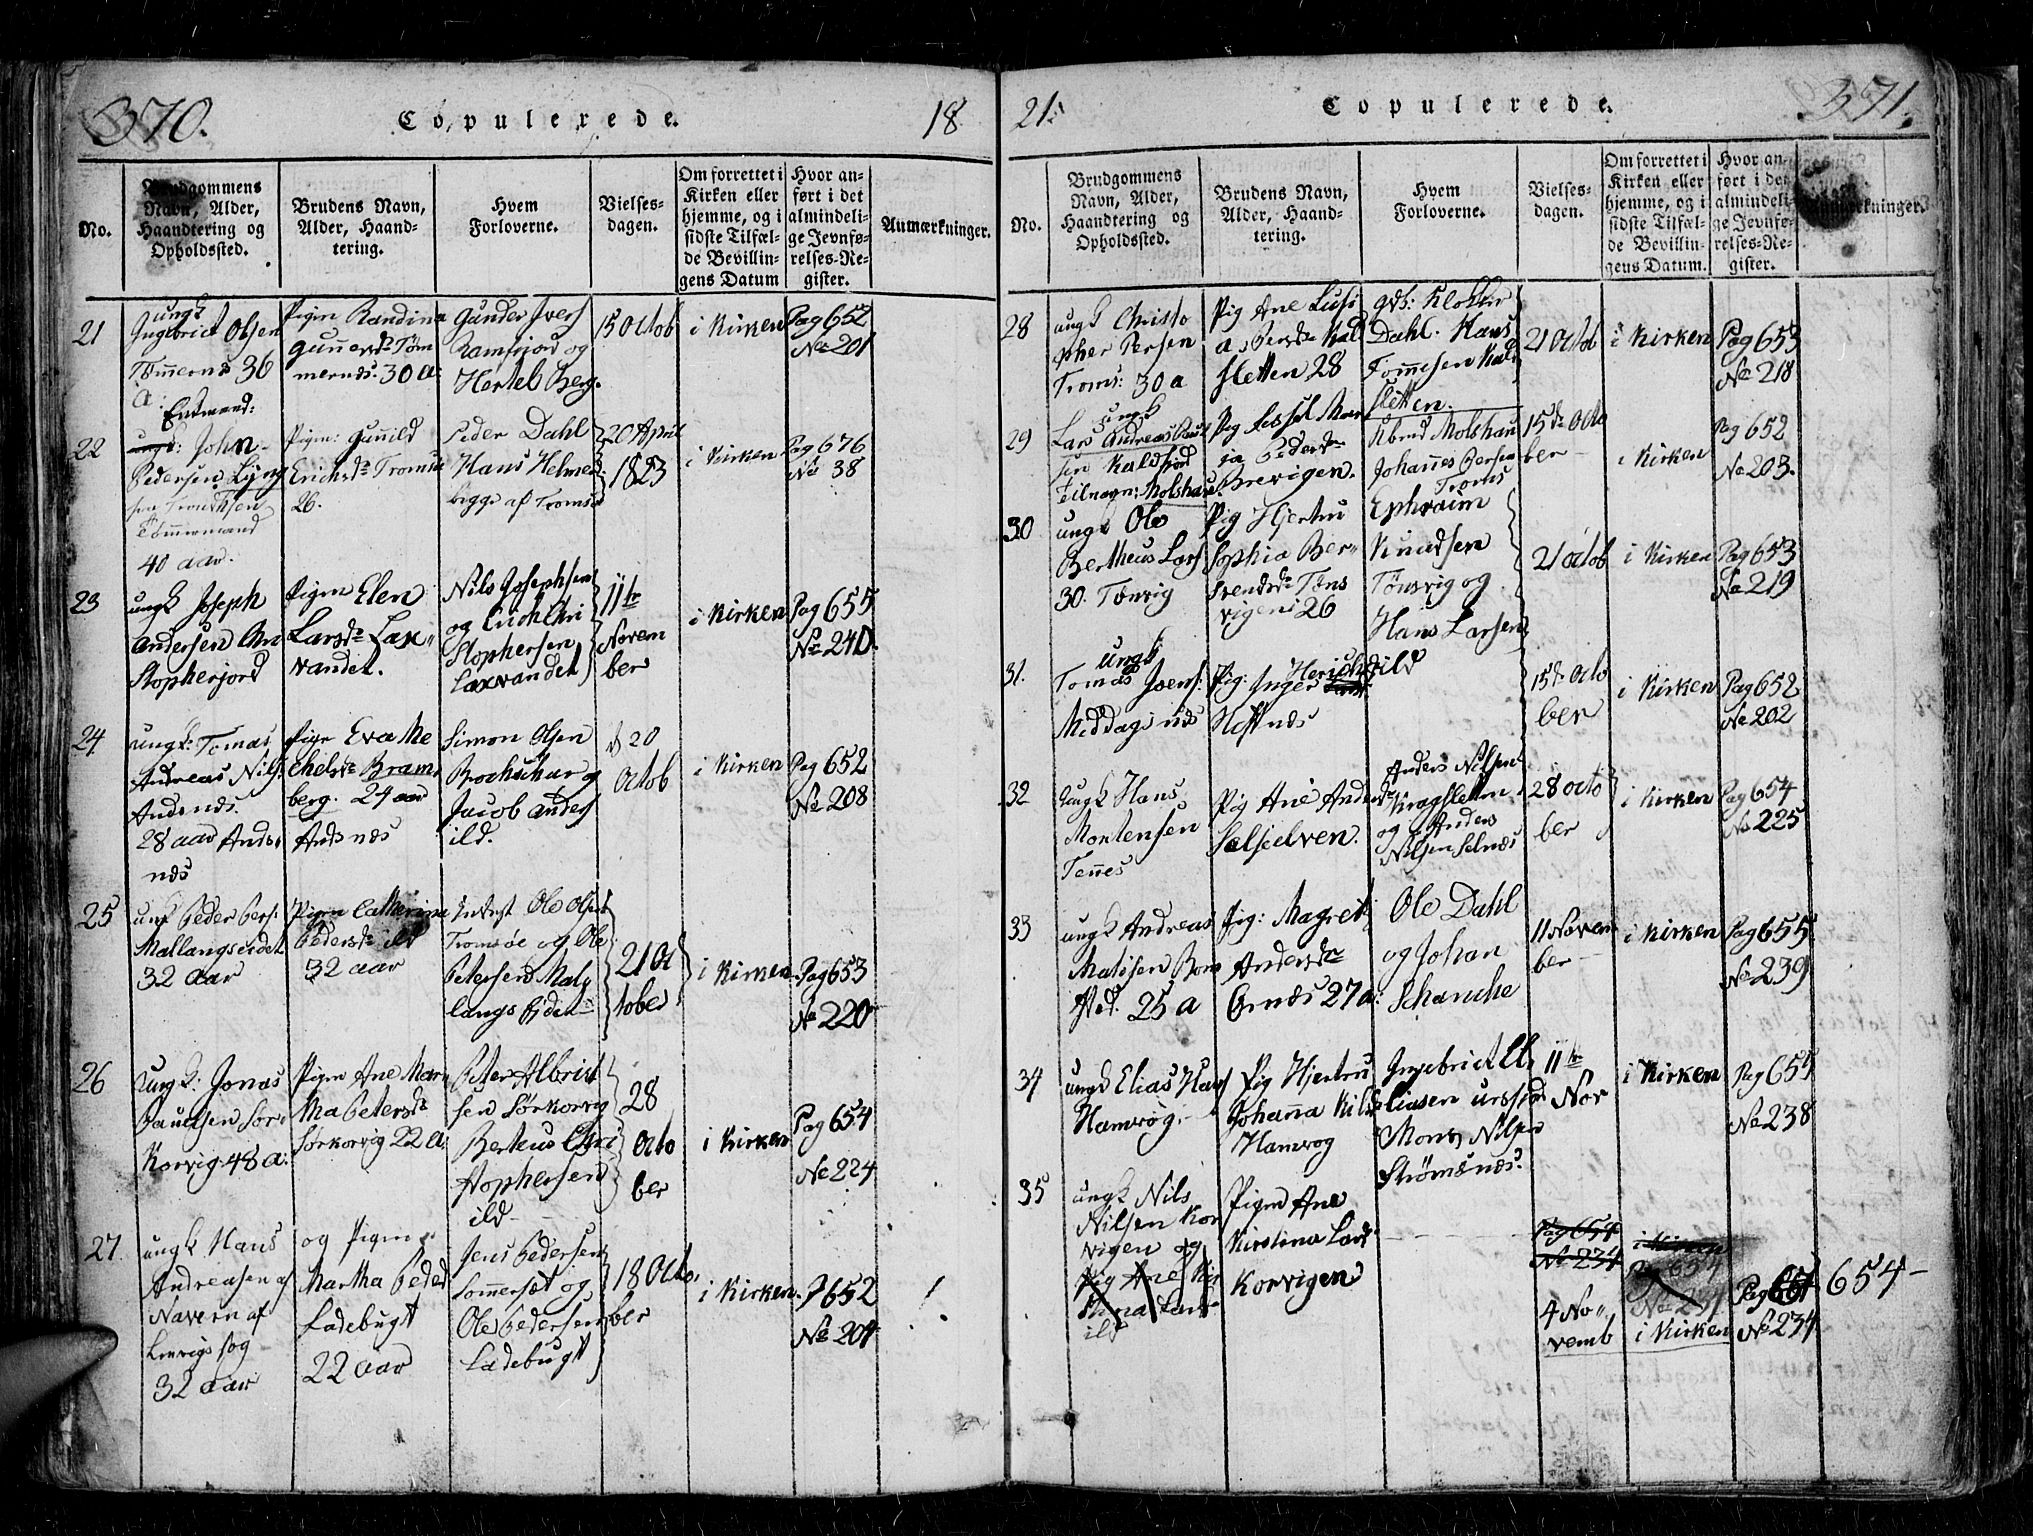 370.
Copulerede.
18
No.
Brudgommens
Navn, Alder,
Haandtering og
Opholdssted.
Brudens Navn,
Alder, Haand-
tering.
Hvem
Forloverne.
Vielses-
dagen.
Om forrettet i
Kirken eller
hjemme, og i
sidste Tilfæl-
de Bevillin-
gens Datum
Hvor an-
ført i det
almindeli-
ge Jevnfø-
relses-Re-
gister.
Anmærkninger.
21
ungk
Ingebrict Olsen
Tömernæs 36
a:
Pigen Randina
Gunnersdr Töm
mernæs. 30 a:
Gunder Ivers
Ramfiord og
Hertel Berg.
15 Octob
i Kirken
Pag 652
No 201
22
Enkemand:
ungk: John
Pedersen Lyng
Tömermand
40 aar.
Pigen: Gunild
Erichsdr Tromsö
26.
Peder Dahl
Hans Helmer
begge af Tromsö
20 April
1823
i Kirken
Pag 676
No 38
23
ungk Joseph
Andersen Chri
stopherjord
Pigen Elen
Larsdr Lax-
vandet.
Nils Josephsen
og Chri
stophersen
Laxvandet
11te
Novem
ber
i Kirken
Pag 655
No 240.
24
ungk: Tomas
Andreas Nils:
Andsnæs.
28 aar Ands-
næs
Pige Eva Me
chelsdr Bram-
berg. 24 aar
Andsnæs
Simon Olsen
Brochskar og
Jacob Anders
ild.
d 20
Octob
i Kirken
Pag 652
No 208
25
ungk Peder Pers:
Mallangseidet
32 aar
Pigen Catherina
Pedersdr ild
32 aar
Ole Olsen
Tromsöe og Ole
Petersen Mal-
langs Eidet
21 Oc
tober
i Kirken
Pag 653
No 220
26
ungk: Jonas
Paulsen Sör-
Korvig. 48 a:
Pigen Ane Mar-
tha Petersdr
Sörkorvig 22 a:
Peter Albrict
sen Sörkorvig
Berteus Chri
stophersen
ild
28
Octo
ber
i Kirken
Pag 654
No 224
27.
ungk Hans
Andreasen af
Navern af
Lenvigs sog
32 aar
og Pigen
Martha Peders
Ladebugt
22 aar
Jens Pedersen
Sommersæt og
Ole Pedersen
Ladebugt
18 Octo-
ber
i Kirken.
P 652
No 204
21.
Copulerede.
371.
No.
Brudgommens
Navn, Alder,
Haandtering og
Opholdssted.
Brudens Navn,
Alder, Haand-
tering.
Hvem
Forloverne.
Vielses-
dagen.
Om forrettet i
Kirken eller
hjemme, og i
sidste Tilfæl-
de Bevillin-
gens Datum.
Hvor an-
ført i det
almindeli-
ge Jevnfø-
relses-Re-
gister.
Anmærkninger.
28
ungk Christo
pher Persen
Troms: 30 a
Pig Ane Lusi
a Persdr Kal
sletten 28
Klokker
Dahl. Hans
Tommesen Kald
sletten.
21 Octob
i Kirken
Pag 653
No 218
29
ungk
Lars Andreas Paul
sen Kaldfiord
Tilnavn: Molshau
Pig Lissel Mar
ja Pedersdr
Brevigen.
Molshau
Johannes Persen
Troms
15de Octo
ber
i Kirken
Pag 652
No 203.
30
ungk Ole
Bertheus Lars
30. Tönvig
Pig Hjertru
Sophia Ber-
Svendsdr Töns
vigen 26
Ephraim
Knudsen
Tönsvig og
Hans Larsen
21 Octob
i Kirken
Pag 653
No 219
31.
ungk
Tomas Joens:
Meddagsnæs
Pig: Inger Henrichs ild
Hestnæs
15de Octo
ber
i Kirken
Pag 652
No 202
32
Ungk Hans
Mortensen
Tennes
Pig Ane Andersdr
Salsielven.
Anders Nilsen
Kragsletten
og Anders
Nilsen Selnæs
28 Octo
ber
i Kirken
Pag 654
No 225
33
ungk Andreas
Matisen Bom
sted. 25 a
Pig: Magret
Andersdr
Ornæs 27 a:
Ole Dahl
og Johan
Schanche
11 Novem
ber
i Kirken
Pag 655
No 239
34
ungk Elias Hans
Hamvög.
Pig Hjertru
Johanna Nils
Hamvog
Ingebrict El-
liasen
Mons Nilsen
Strömsnæs.
11te
Nov
i Kirken
Pag 655
No 238
35
ungk Nils
Nilsen Kor
vigen og
Pig Ane Kir
stina Lars
ild
Pigen Ane
Kirstina Lars
Korvigen
Pag 654
No 234
4 No-
vemb
i Kirken
Pag 654
No 234
i Kirken
Pag 651
No 234
654